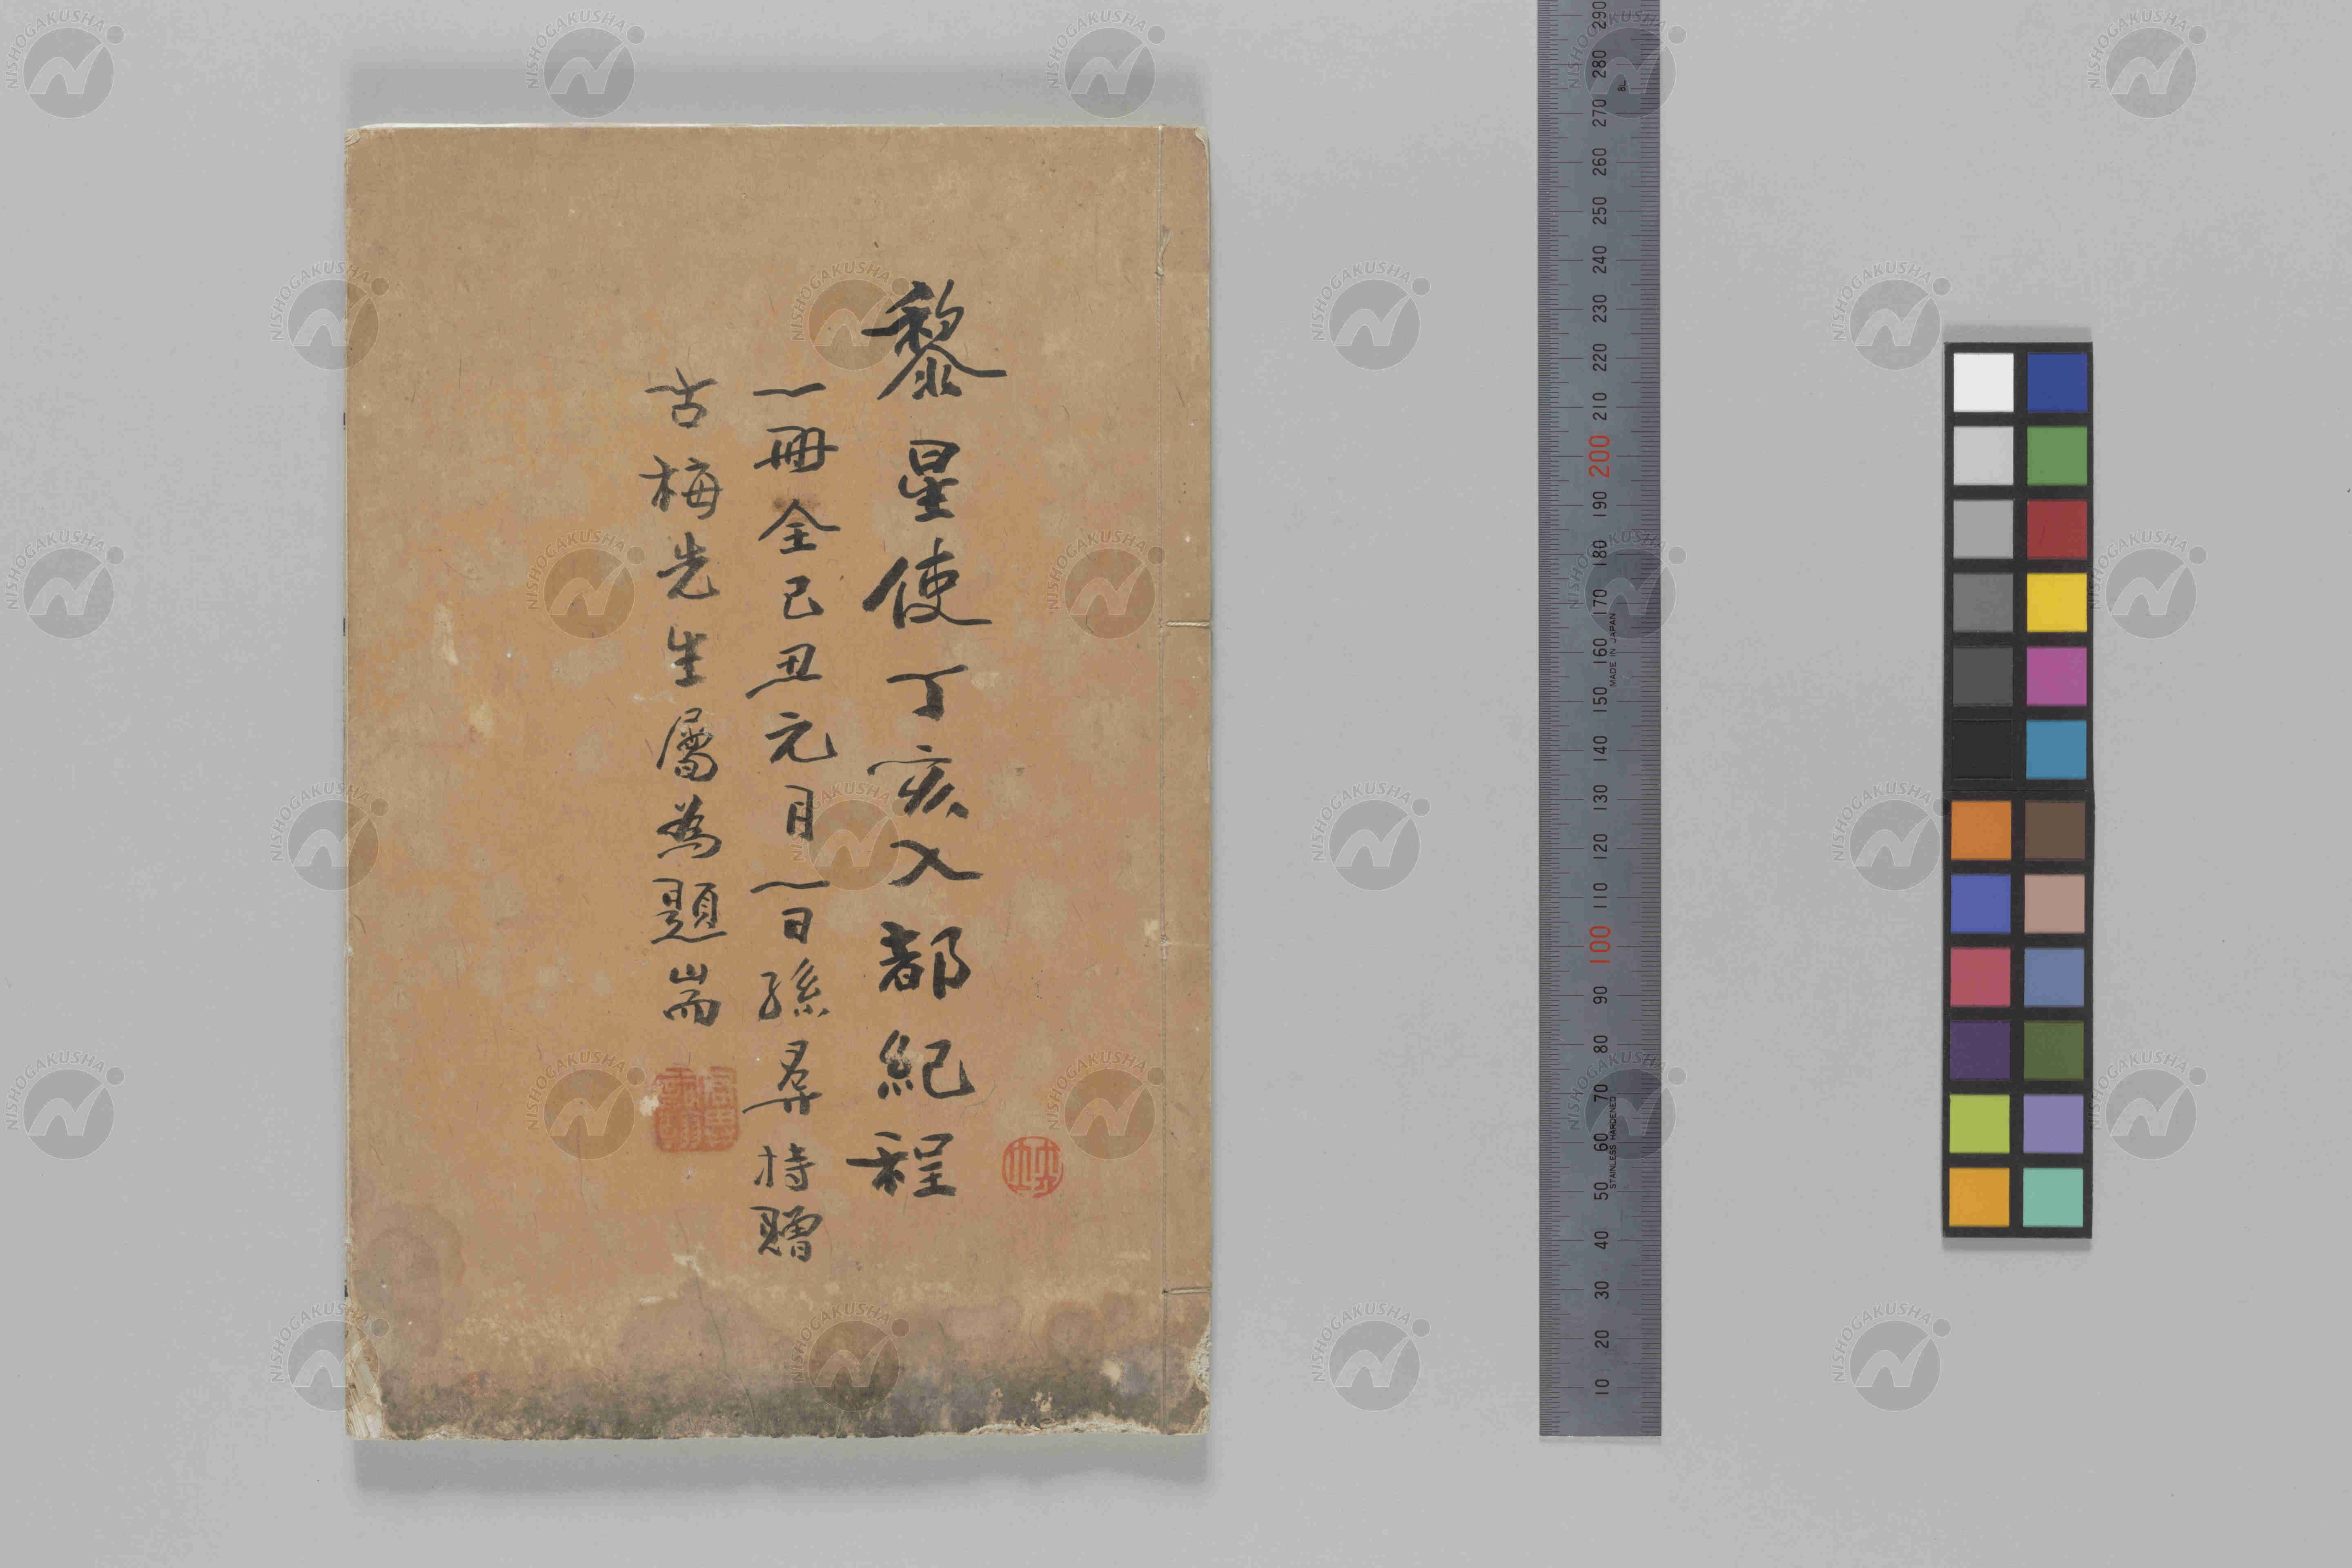 黎星使丁亥入都紀程
一冊全己丑元月一日孫君異持贈
古梅先生屬為題耑
290
280
270
260
250
240
230
220
210
200
190
180
170
160
150
140
130
120
110
100
90
80
70
60
50
40
30
20
10
MADE IN JAPAN
STAINLESS HARDENED
NISHOGAKUSHA